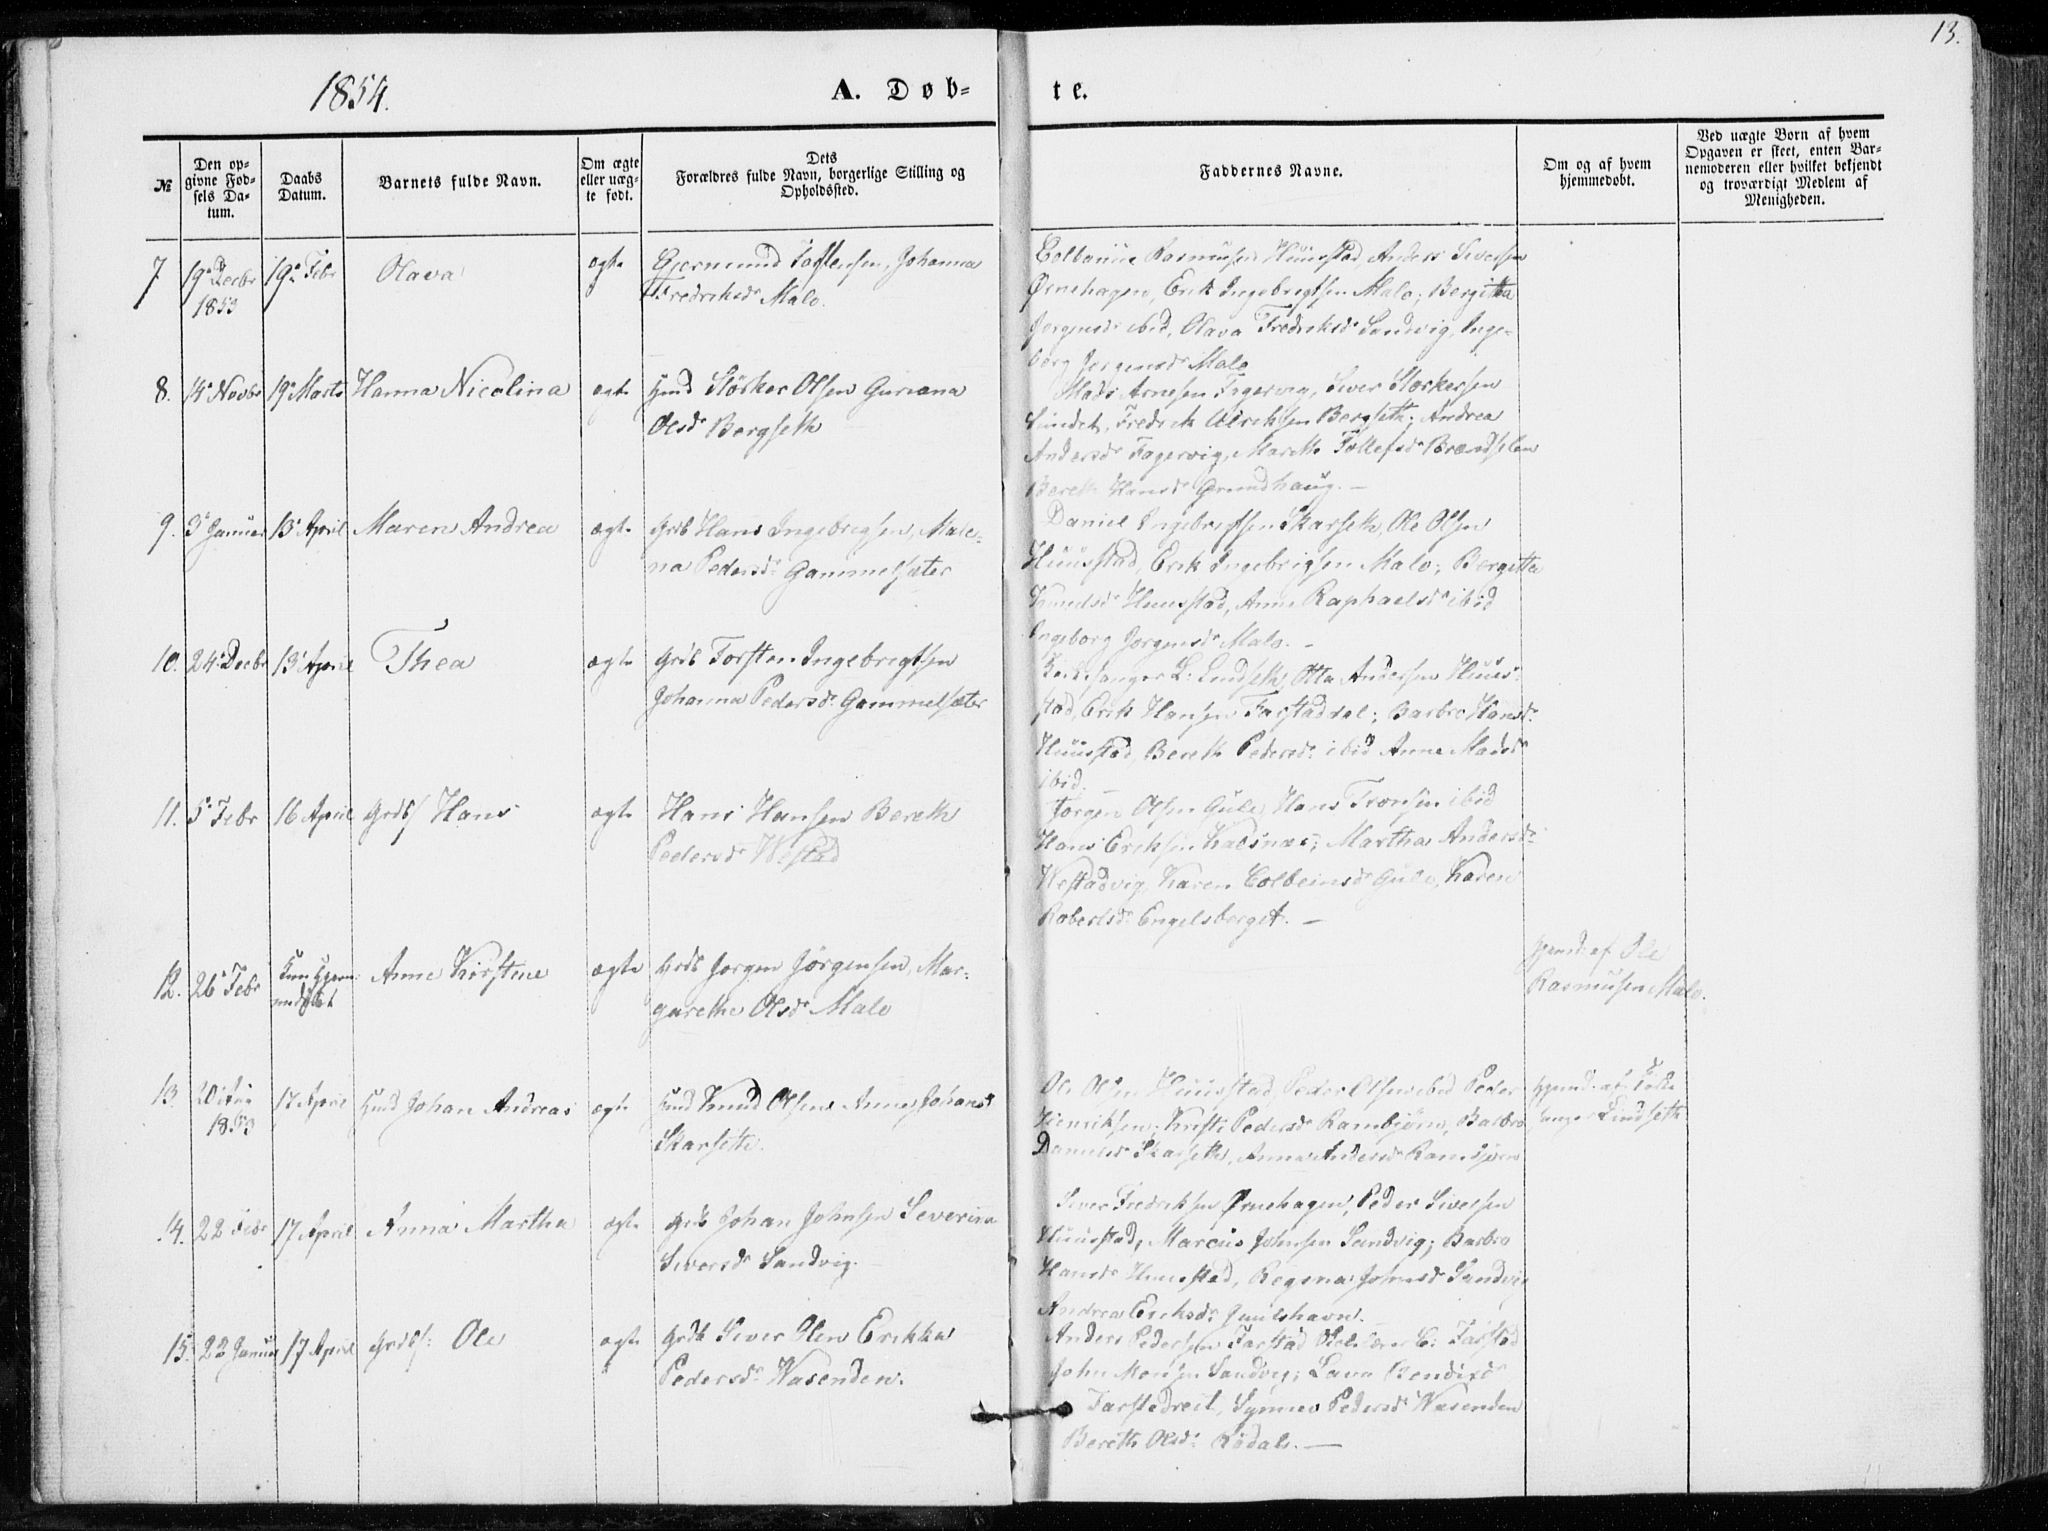 13.
1854.
A. Døb-
te.
№
Den op-
givne Fød-
sels Da-
tum.
Daabs
Datum.
Barnets fulde Navn.
Om ægte
eller uæg-
te født.
Dets
Forældres fulde Navn, borgerlige Stilling og
Opholdssted.
Faddernes Navne.
Om og af hvem
hjemmedøbt.
Ved uægte Børn af hvem
Opgaven er skeet, enten Bar-
nemoderen eller hvilket bekjendt
og troværdigt Medlem af
Menigheden.
7 19de Decbr 19de Febr Olava ægte Gjermund Torstensen, Johanna
1853 Fredriksdr Malo.
Rasmusen Huustad, Anders Siversen
Ørnehagen, Erik Ingebrigtsen Malo; Bergitta
Jørgensdr ibid, Olava Fredriksdr Sandvig, Inge-
borg Jørgensdr Malo
8. 14de Novbr 19de Marts Hanna Nicolina ægte Huusmd Størker Olsen Guriana
Olsdr Bergseth
Mads Arnesen Fagervig, Siver Størkersen
Sundet, Fredrik Ulriksen Bergseth; Andrea
Andersdr Fagervig, Mareth Tollefsdr
Bereth Hansdr Grundhaug. —
9. 3de Januar 13de April Maren Andrea ægte Grdb Hans Ingebrigsen, Male-
na Pedersdr Gammelsæter
Daniel Ingebrigtsen Skarseth, Ole Olsen
Huustad, Erik Ingebrigtsen Malo; Bergitta
Knudsdr Huustad, Anne Raphaelsdr ibid
Ingeborg Jørgensdr Malo. —
10. 24de Decbr 13de April Thea ægte Grdb Torsten Ingebrigtsen
Johanna Pedersdr Gammelsæter
Kirkesanger L. Lindseth, Otto Andersen Huu-
stad, Erik Hansen Farstaddal; Barbro Hansdr
Huustad, Bereth Pedersdr ibid Anne Madsdr
ibid. —
11. 5te Febr 16 April Grdbs/ Hans ægte Hans Hansen Bereth
Pedersdr Westad
Jørgen Olsen Gule, Hans Tronsen ibid
Hans Eriksen Kalsnæs; Martha Andersdr
Westadvig, Karen Colbeinsdr Gule, Karen
Robertsdr Engelsberget. —
12. 26de Febr Kun hjem-
medøbt Anne Kirstine ægte Grdb Jørgen Jørgensen, Mar-
garethe Olsdr Malo
Hjemd. af Ole
Rasmusen Malo.
13. 1853 17 April Huusmd Johan Andreas ægte Huusmd Knud Olsen Anne Johansdr
Skarseth.
Ole Olsen Huustad, Peder Olsen ibid Peder
Henriksen; Kristi Pedersdr Rambjørn, Barbro
Danielsdr Skarseth, Anna Andersdr Rambjørn
Hjemd. af Kirke-
sanger Lindseth
14. 22 Febr 17 April Anna Martha ægte Grdb Johan Johnsen Severina
Siversdr Sandvig. —
Siver Fredriksen Ørnehagen, Peder Siversen
Huustad, Marcus Johnsen Sandvig; Barbro
Hansdr Huustad, Regina Johnsdr Sandvig
Andrea Eriksdr Juulshavn. —
15. 22 Januar 17 April Grdbs/: Ole ægte Grdb Siver Olsen Erikka
Pedersdr Wasenden.
Anders Pedersen Farstad Farstad
John Monsen Sandvig; Lava Bendixsdr
Farstadreit, Synnev Pedersdr Wasenden
Bereth Olsdr Rødal. —